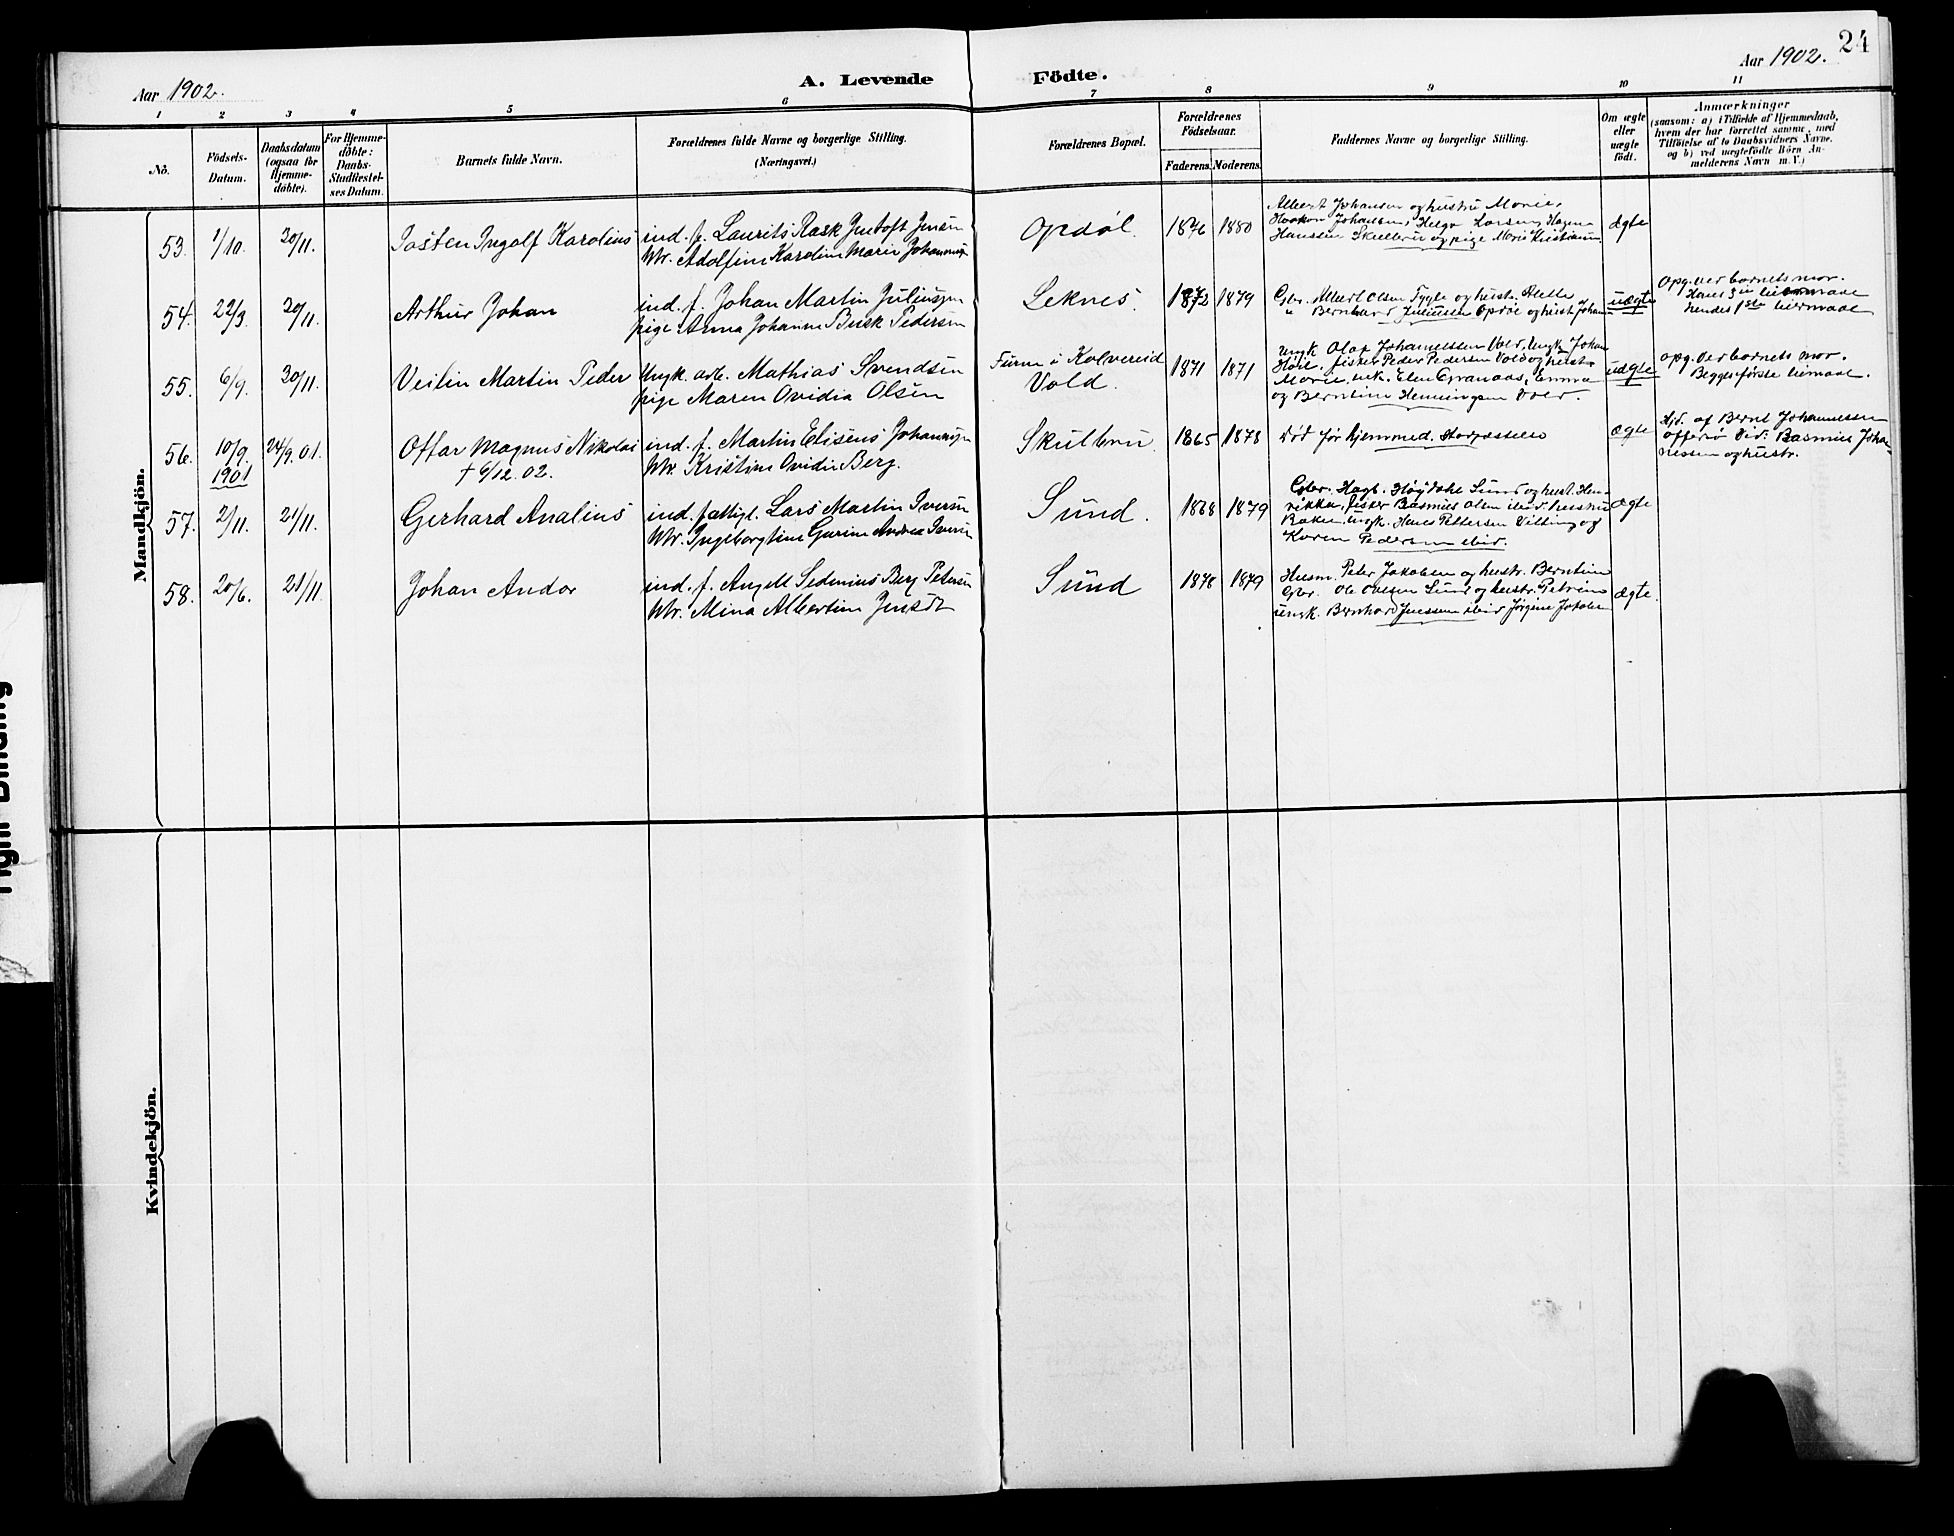 24
Aar 1902.
A. Levende Födte.
Aar 1902.
1 2 3 4 5 6 7 8 9 10 11
No.
Födsels-
Datum.
Daabsdatum
(ogsaa for
Hjemme-
döbte).
For Hjemme-
döbte:
Daabs-
Stadfæstel-
ses Datum.
Barnets fulde Navn.
Forældrenes fulde Navne og borgerlige Stilling.
(Næringsvei.)
Forældrenes Bopæl.
Forældrenes
Födselsaar.
Faderens. Moderens.
Faddernes Navne og borgerlige Stilling.
Om ægte
eller
uægte
födt.
Anmærkninger
(saasom: a) i Tilfælde af Hjemmedaab,
hvem der har forrettet samme, med
Tilföielse af to Daabsvidners Navne,
og b) ved uægtefödte Börn An-
melderens Navn m. V.)
Mandkjön.
53. 1/10. 30/11. Josten Ingolf Karolius
ind. f. Laurits Rask Jentoft Jensen
Htr. Adolfine Karoline Marie
Opdøl. 1876 1880
Albert Johansen og hustru Marie,
Haakon Johansen, Helga Larsen, Hagen
Hanssen Skulbru og pige Marie Kristiansen
ægte
54. 22/3. 30/11. Arthur Johan
ind. f. Johan Martin Juliussen
pige Anna Johanne Busk Pedersen
Leknes. 1872 1879
Gbr. Albert Olsen Fygle og hustr. Alette
" Bernhard Juliussen Opdøl og hust. Johan
uægte
Opg. ved barnets mor.
Hans 3die leiermaal
hendes 1ste leiermaal
55. 6/9. 30/11. Veilin Martin Peder
Ungk. arb. Mathias Svendsen
pige Maren Ovidia Olsen
Furne i Kolvereid
Vold. 1871 1871
Ungk Olaf Johannessen Vold, Ungk Johan
Høil, fisker Peder Pedersen Vold og hustr
Marie, enk. Elen Granaas, Emma
og Berntine Henningsen Vold.
uægte
opg. ved barnets mor.
Begges første leiermaal.
56. 10/9. 1901 24/9.01. Ottar Magnus Nikolai
† 6/12.02.
ind. f. Martin Elisæus Johannessen
Htr. Kristine Ovidie Berg.
Skulbru. 1865 1878
død før hjemmed. stadfæstelse
ægte
Hjd. af Bernt Johannessen
Offersø Vid: Rasmus Johan-
nessen og hustr.
57. 2/11. 21/11. Gerhard Analius
ind. fattigl. Lars Martin Iversen
Htr. Ingeborgtine Gurine Andrea Iversen
Sund. 1868 1879
Gbr. Hagb. Høydahl Sund og hust. Hen-
rikka, fisker Rasmus Olsen ibid. hustru
Rakel, Ungk. Hans Pettersen Villing og
Karen Pedersen ibid.
ægte
58. 20/6. 21/11. Johan Andor
ind. f. Angell Sedenius Berg Petersen
Htr. Mina Albertine Jensdt
Sund 1878 1879
Husm. Peter Jakobsen og hustr. Berntine
Gbr. Ole Olsen Sund og hustr. Petrine
ungk. Bernhard Jenssen ibid Jørgine Jakobsen
ægte.
Kvindekjön.